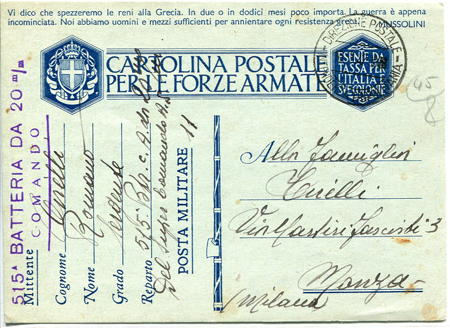 Vi dico che spezzeremo le reni alla Grecia. In due o in dodici mesi poco importa. La guerra è appena
incominciata. Noi abbiamo uomini e mezzi sufficienti per annientare ogni resistenza greca. MUSSOLINI
CARTOLINA POSTALE
PER LE FORZE ARMATE
ESENTE DA
TASSA PER
L'ITALIA E
SUE COLONIE
DIREZIONE POSTALE
45
515ª BATTERIA DA 20 m/m
COMANDO
Mittente
Cognome
Nome Romano
Grado
Reparto 515 Btr.
Comando
POSTA MILITARE 11
Alla Famiglia
Via Martiri Fascisti 3
Monza
(Milano)